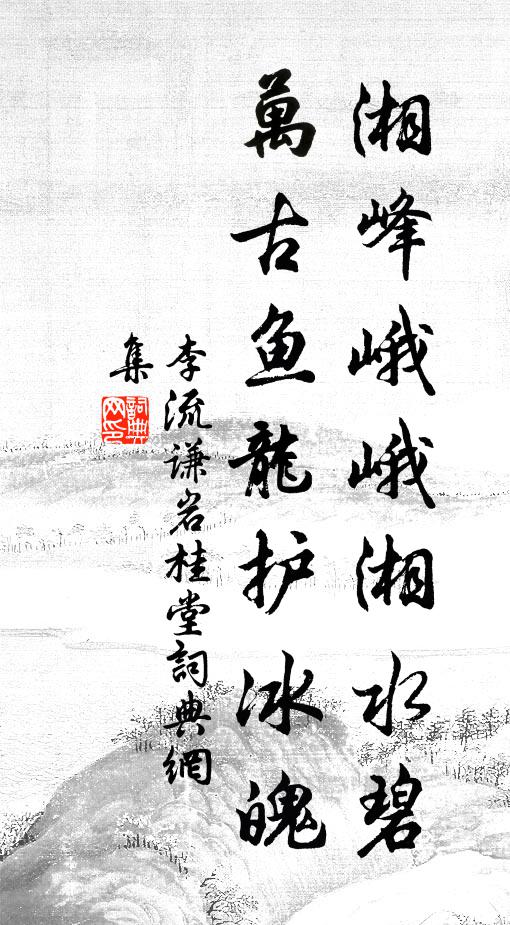 湘峰峨峨湘水碧
萬古鱼龍护冰魄
李流谦岩桂堂詞典網
集
詞典網印